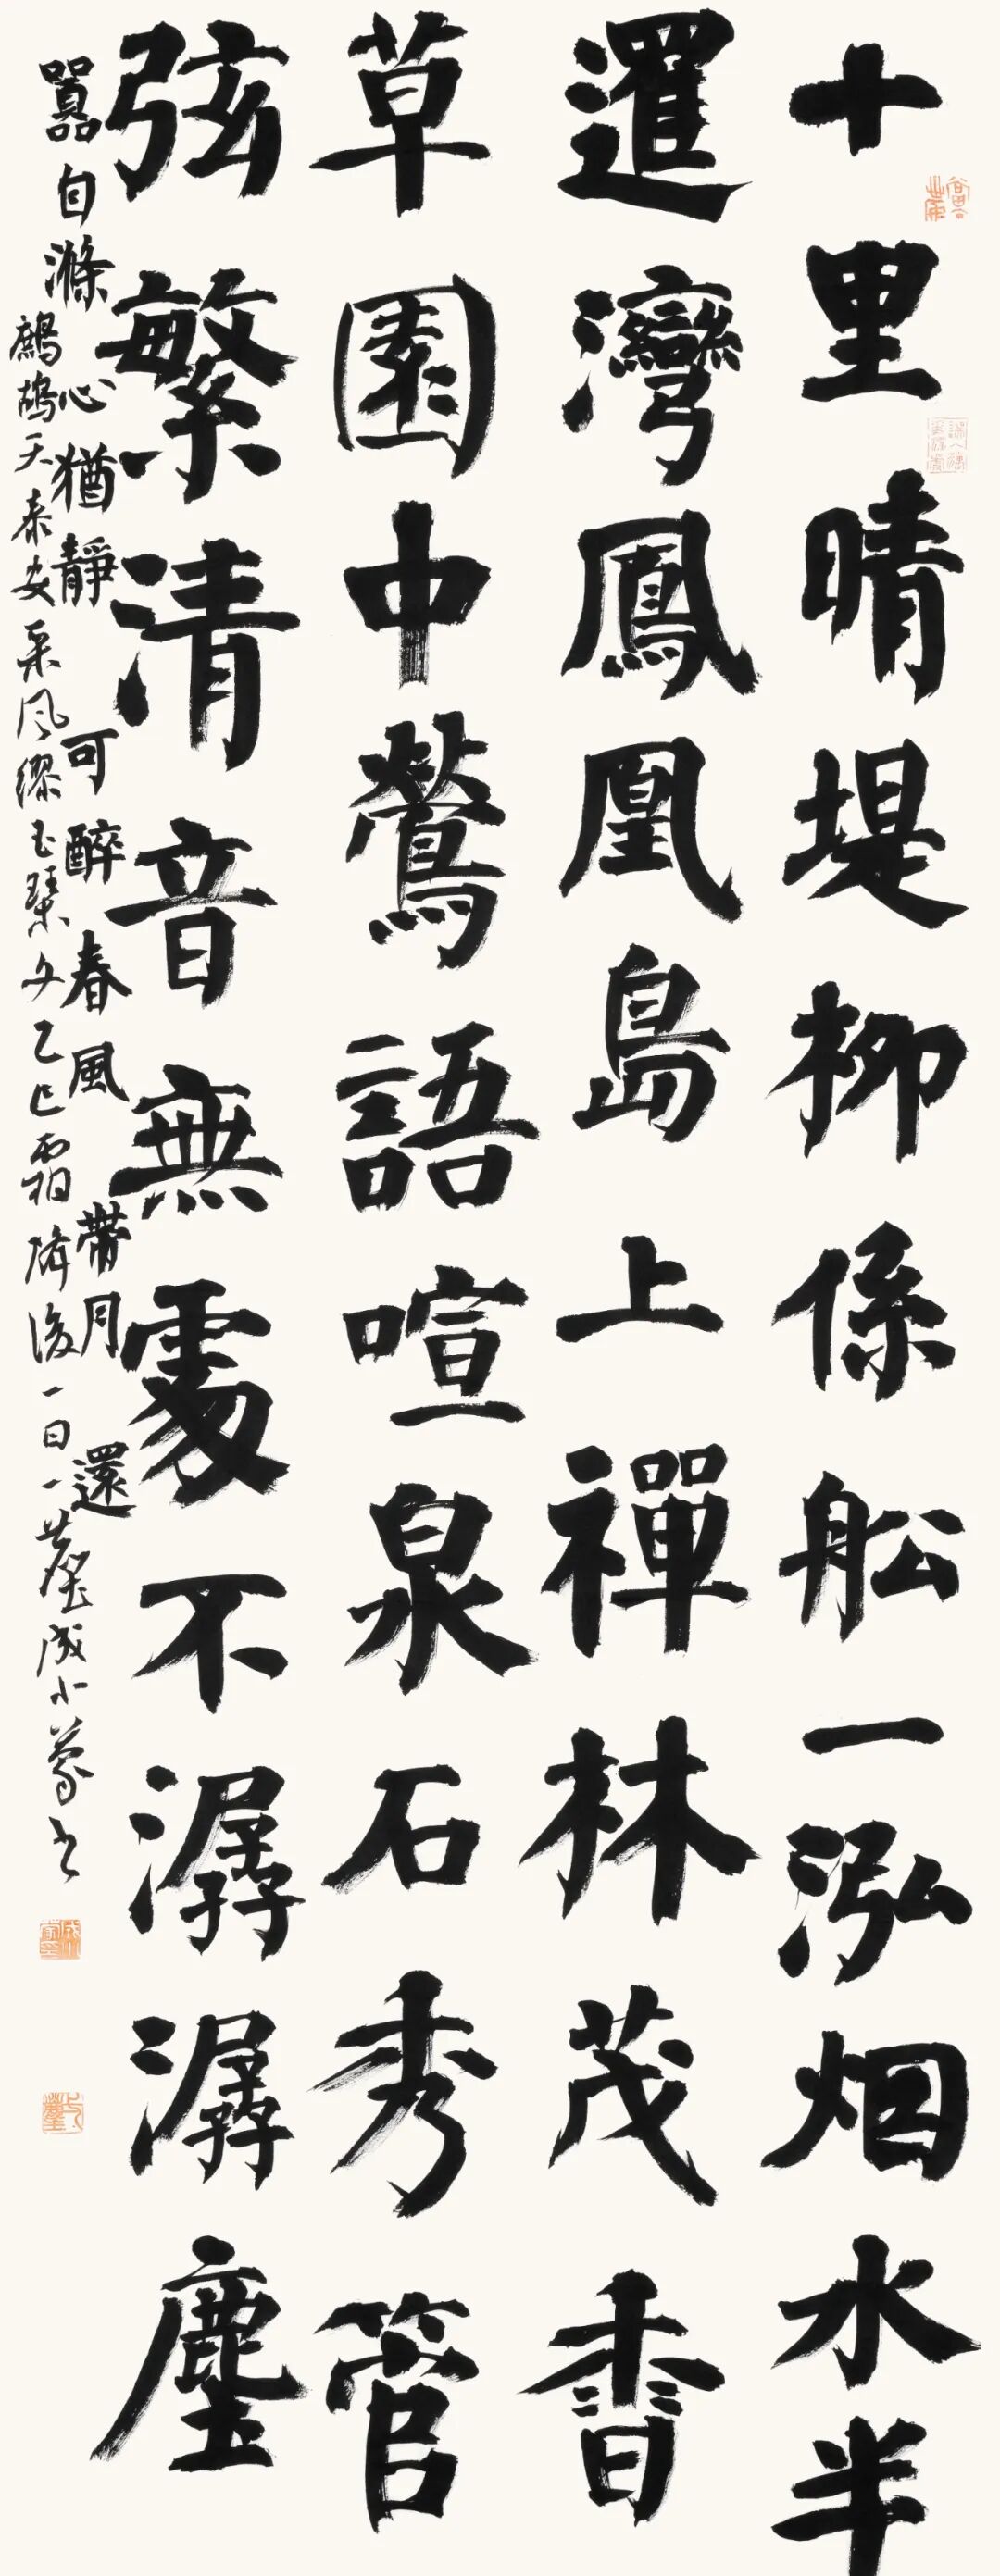 十里晴堤柳係船一泓烟水半
暹灣鳳凰島上禪林茂香
草園中鶯語喧泉石秀管
弦繁清音無處不潺潺塵
囂自滌心猶靜可醉春風帶月還
鷓鴣天泰安采风缪玉琹女乙巳霜降後一日一塵成小蒙书